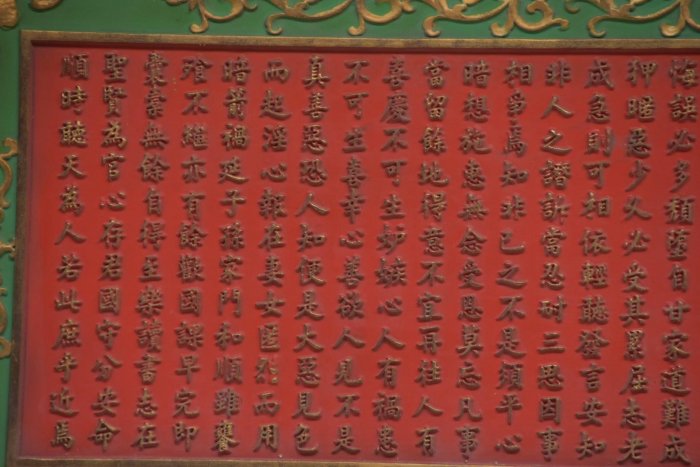 悔誤必多頹墮自甘家道難成
狎暱惡少久必受其累屈志老
成急則可相依輕聽發言安知
非人之譖訴當忍耐三思因事
相爭焉知非己之不是須平心
暗想施惠無念受恩莫忘凡事
當留餘地得意不宜再往人有
喜慶不可生妒嫉心人有禍患
不可生喜幸心善欲人見不是
真善惡恐人知便是大惡見色
而起淫心報在妻女匿怨而用
暗箭禍延子孫家門和順雖饔
飧不繼亦有餘歡國課早完即
囊橐無餘自得至樂讀書志在
聖賢為官心存君國守分安命
順時聽天為人若此庶乎近焉